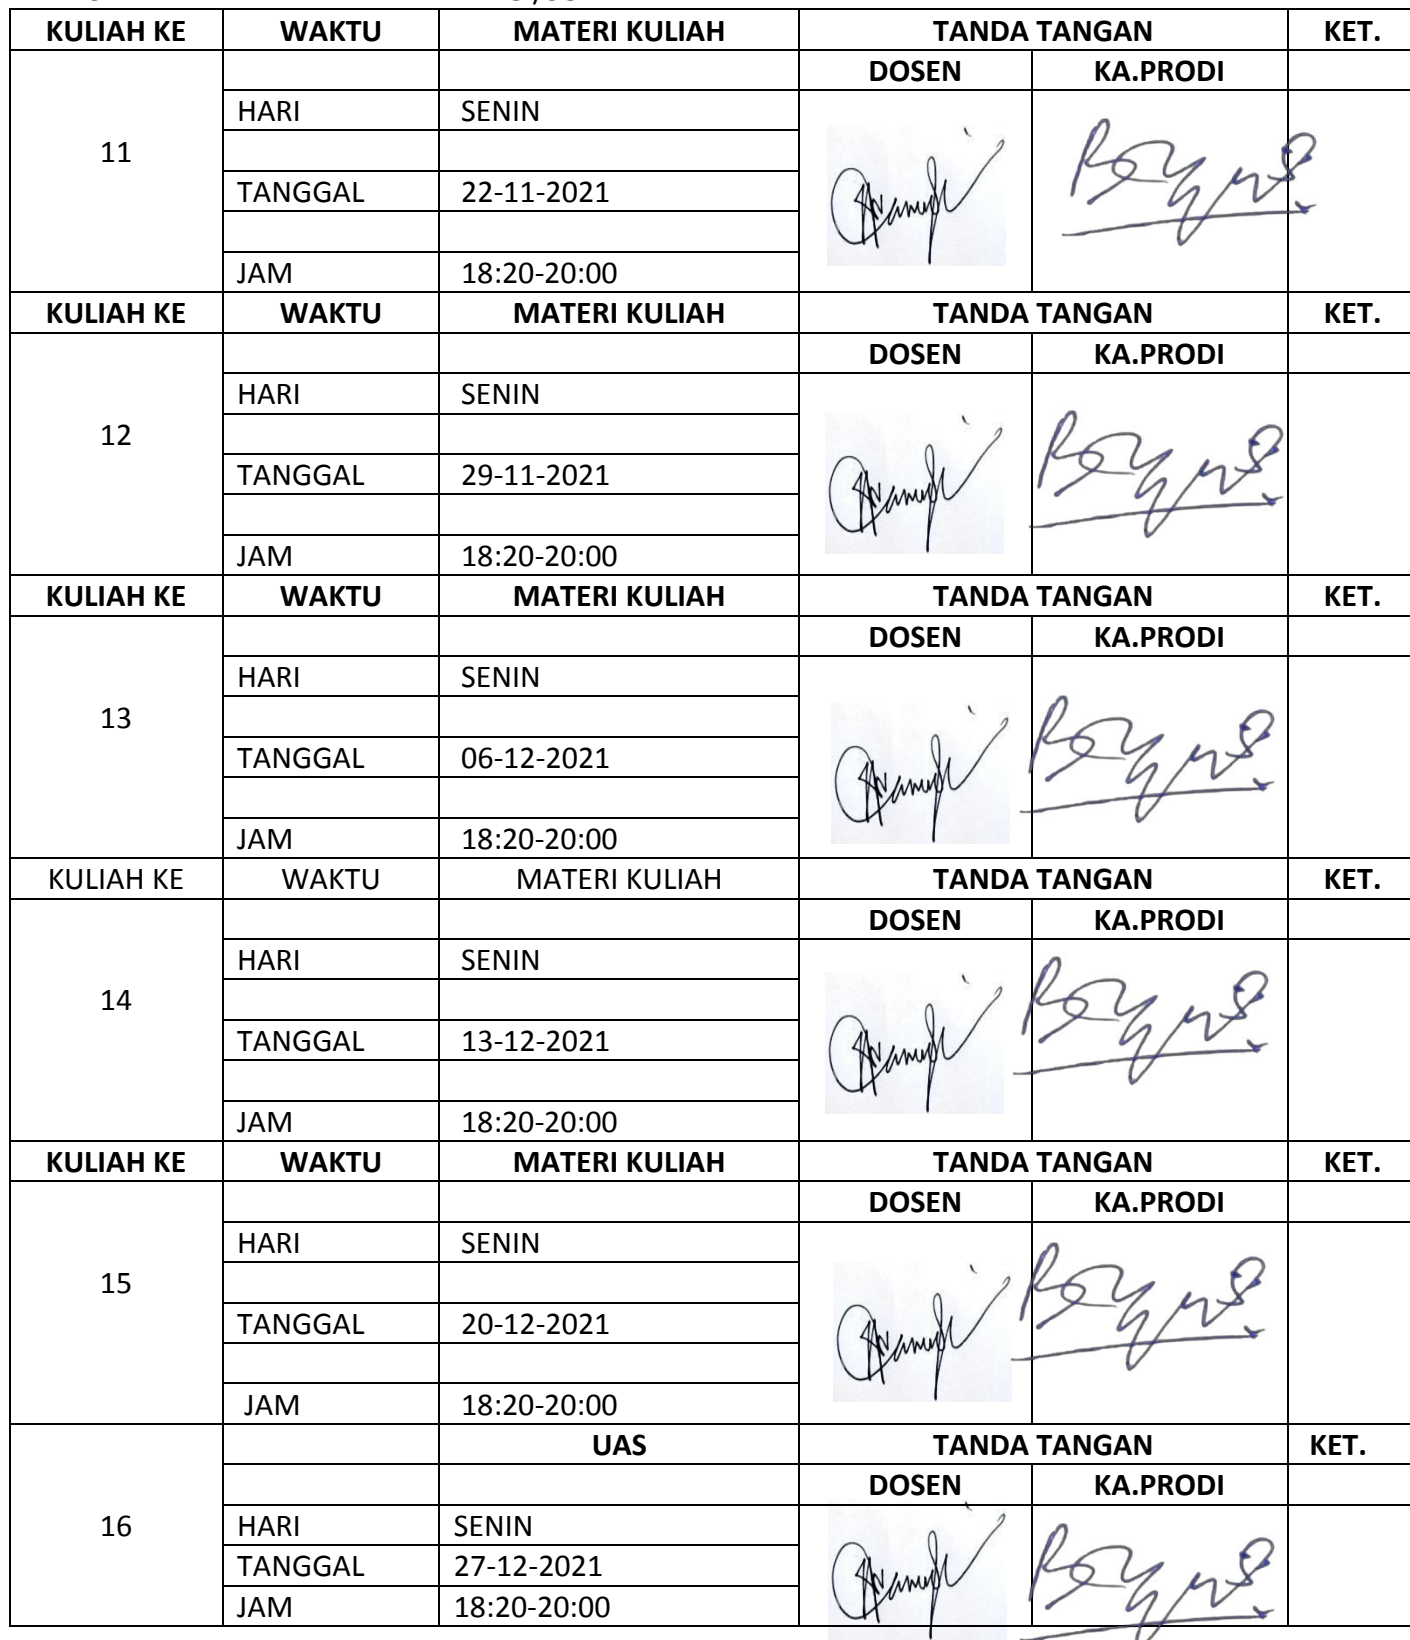 KULIAH KE WAKTU MATERI KULIAH TANDA TANGAN KET.
DOSEN KA.PRODI
11
HARI SENIN
TANGGAL 22-11-2021
JAM 18:20-20:00
KULIAH KE WAKTU MATERI KULIAH TANDA TANGAN KET.
DOSEN KA.PRODI
12
HARI SENIN
TANGGAL 29-11-2021
JAM 18:20-20:00
KULIAH KE WAKTU MATERI KULIAH TANDA TANGAN KET.
DOSEN KA.PRODI
13
HARI SENIN
TANGGAL 06-12-2021
JAM 18:20-20:00
KULIAH KE WAKTU MATERI KULIAH TANDA TANGAN KET.
DOSEN KA.PRODI
14
HARI SENIN
TANGGAL 13-12-2021
JAM 18:20-20:00
KULIAH KE WAKTU MATERI KULIAH TANDA TANGAN KET.
DOSEN KA.PRODI
15
HARI SENIN
TANGGAL 20-12-2021
JAM 18:20-20:00
UAS TANDA TANGAN KET.
DOSEN KA.PRODI
16
HARI SENIN
TANGGAL 27-12-2021
JAM 18:20-20:00